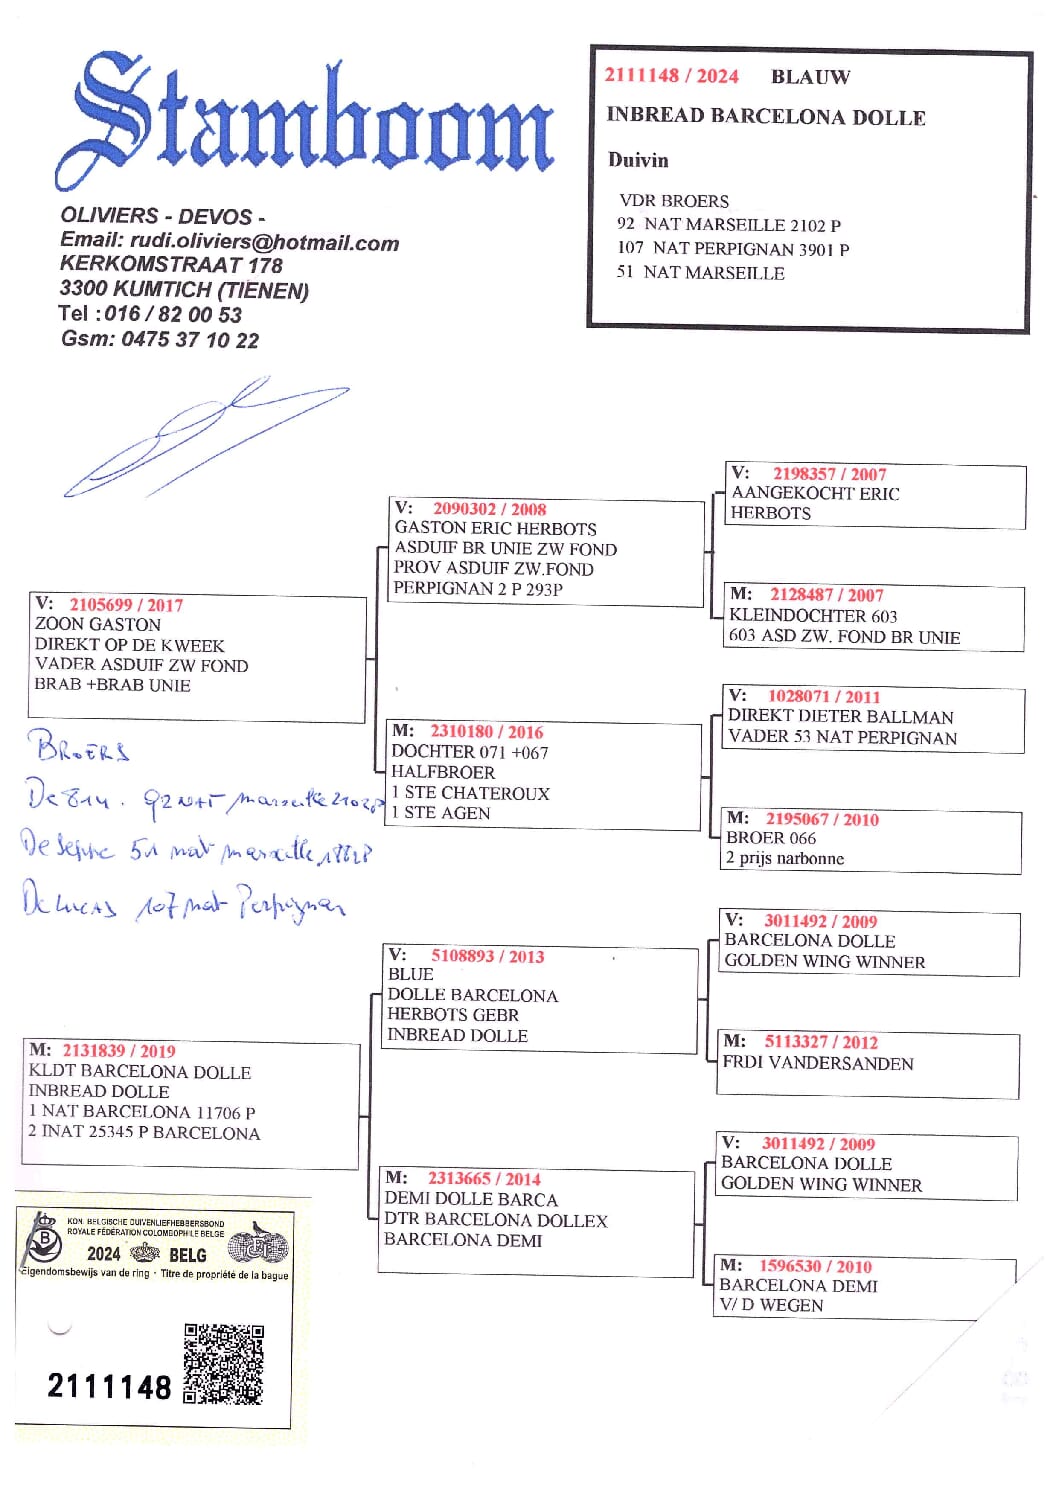 Stamboom
OLIVIERS - DEVOS -
Email: rudi.oliviers@hotmail.com
KERKOMSTRAAT 178
3300 KUMTICH (TIENEN)
Tel : 016 / 82 00 53
Gsm: 0475 37 10 22
2111148 / 2024 BLAUW
INBREAD BARCELONA DOLLE
Duivin
VDR BROERS
92 NAT MARSEILLE 2102 P
107 NAT PERPIGNAN 3901 P
51 NAT MARSEILLE
V: 2105699 / 2017
ZOON GASTON
DIREKT OP DE KWEEK
VADER ASDUIF ZW FOND
BRAB +BRAB UNIE
BROERS
De 814. 92 NAT marseille 2102P
De 51 nat marseille
De LUCAS 107 nat Perpignan
M: 2131839 / 2019
KLDT BARCELONA DOLLE
INBREAD DOLLE
1 NAT BARCELONA 11706 P
2 INAT 25345 P BARCELONA
V: 2090302 / 2008
GASTON ERIC HERBOTS
ASDUIF BR UNIE ZW FOND
PROV ASDUIF ZW.FOND
PERPIGNAN 2 P 293P
M: 2310180 / 2016
DOCHTER 071 +067
HALFBROER
1 STE CHATEROUX
1 STE AGEN
V: 5108893 / 2013
BLUE
DOLLE BARCELONA
HERBOTS GEBR
INBREAD DOLLE
M: 2313665 / 2014
DEMI DOLLE BARCA
DTR BARCELONA DOLLEX
BARCELONA DEMI
V: 2198357 / 2007
AANGEKOCHT ERIC
HERBOTS
M: 2128487 / 2007
KLEINDOCHTER 603
603 ASD ZW. FOND BR UNIE
V: 1028071 / 2011
DIREKT DIETER BALLMAN
VADER 53 NAT PERPIGNAN
M: 2195067 / 2010
BROER 066
2 prijs narbonne
V: 3011492 / 2009
BARCELONA DOLLE
GOLDEN WING WINNER
M: 5113327 / 2012
FRDI VANDERSANDEN
V: 3011492 / 2009
BARCELONA DOLLE
GOLDEN WING WINNER
M: 1596530 / 2010
BARCELONA DEMI
V/ D WEGEN
KON. BELGISCHE DUIVENLIEFHEBBERSBOND
ROYALE FÉDÉRATION COLOMBOPHILE BELGE
B
2024 BELG
Eigendomsbewijs van de ring - Titre de propriété de la bague
2111148